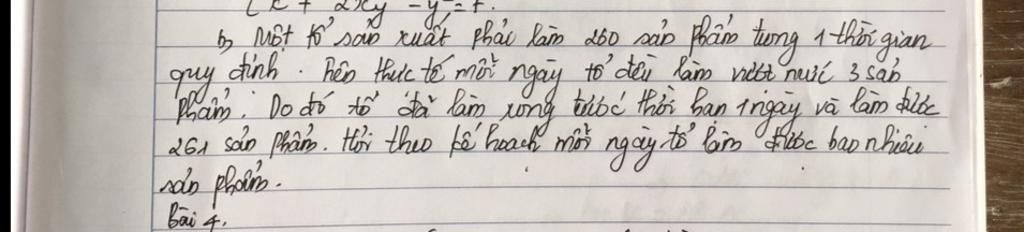 b) Một tổ sản xuất phải làm 260 sản phẩm trong 1 thời gian
quy định. Trên thực tế mỗi ngày tổ đều làm vượt mức 3 sản
phẩm. Do đó tổ đã làm xong trước thời hạn 1 ngày và làm được
261 sản phẩm. Hỏi theo kế hoạch mỗi ngày tổ làm được bao nhiêu
sản phẩm.
Bài 4.